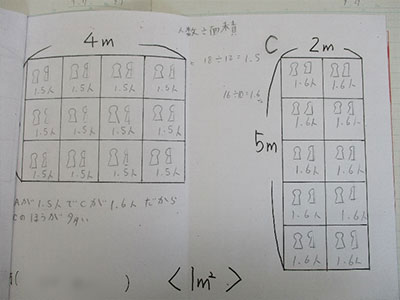 人数と面積
4m
18÷12=1.5
16÷10=1.6
1.5人 1.5人 1.5人 1.5人
1.5人 1.5人 1.5人 1.5人
1.5人 1.5人 1.5人 1.5人
Aが1.5人でCが1.6人だから
Cのほうが
C
2m
5m
1.6人 1.6人
1.6人 1.6人
1.6人 1.6人
1.6人 1.6人
1.6人 1.6人
<1m²>